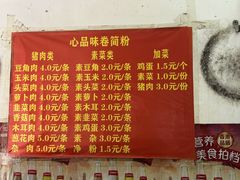 心品味卷筒粉
猪肉类 素菜类 加菜
豆角肉 4.0元/条 素豆角 2.0元/条 鸡蛋 1.5元/个
玉米肉 4.0元/条 素玉米 2.0元/条 素菜 1.0元/份
头菜肉 4.0元/条 素头菜 2.0元/条 猪肉 3.0元/份
萝卜肉 4.0元/条 素萝卜 2.0元/条
韭菜肉 4.0元/条 素木耳 2.0元/条
香菇肉 4.0元/条 素韭菜 2.0元/条
木耳肉 4.0元/条 素香菇 2.0元/条
葱花肉 5.0元/条 素杂 3.0元/条
杂肉 5.0元/条 净粉 1.5元/条
营养
美食拍档